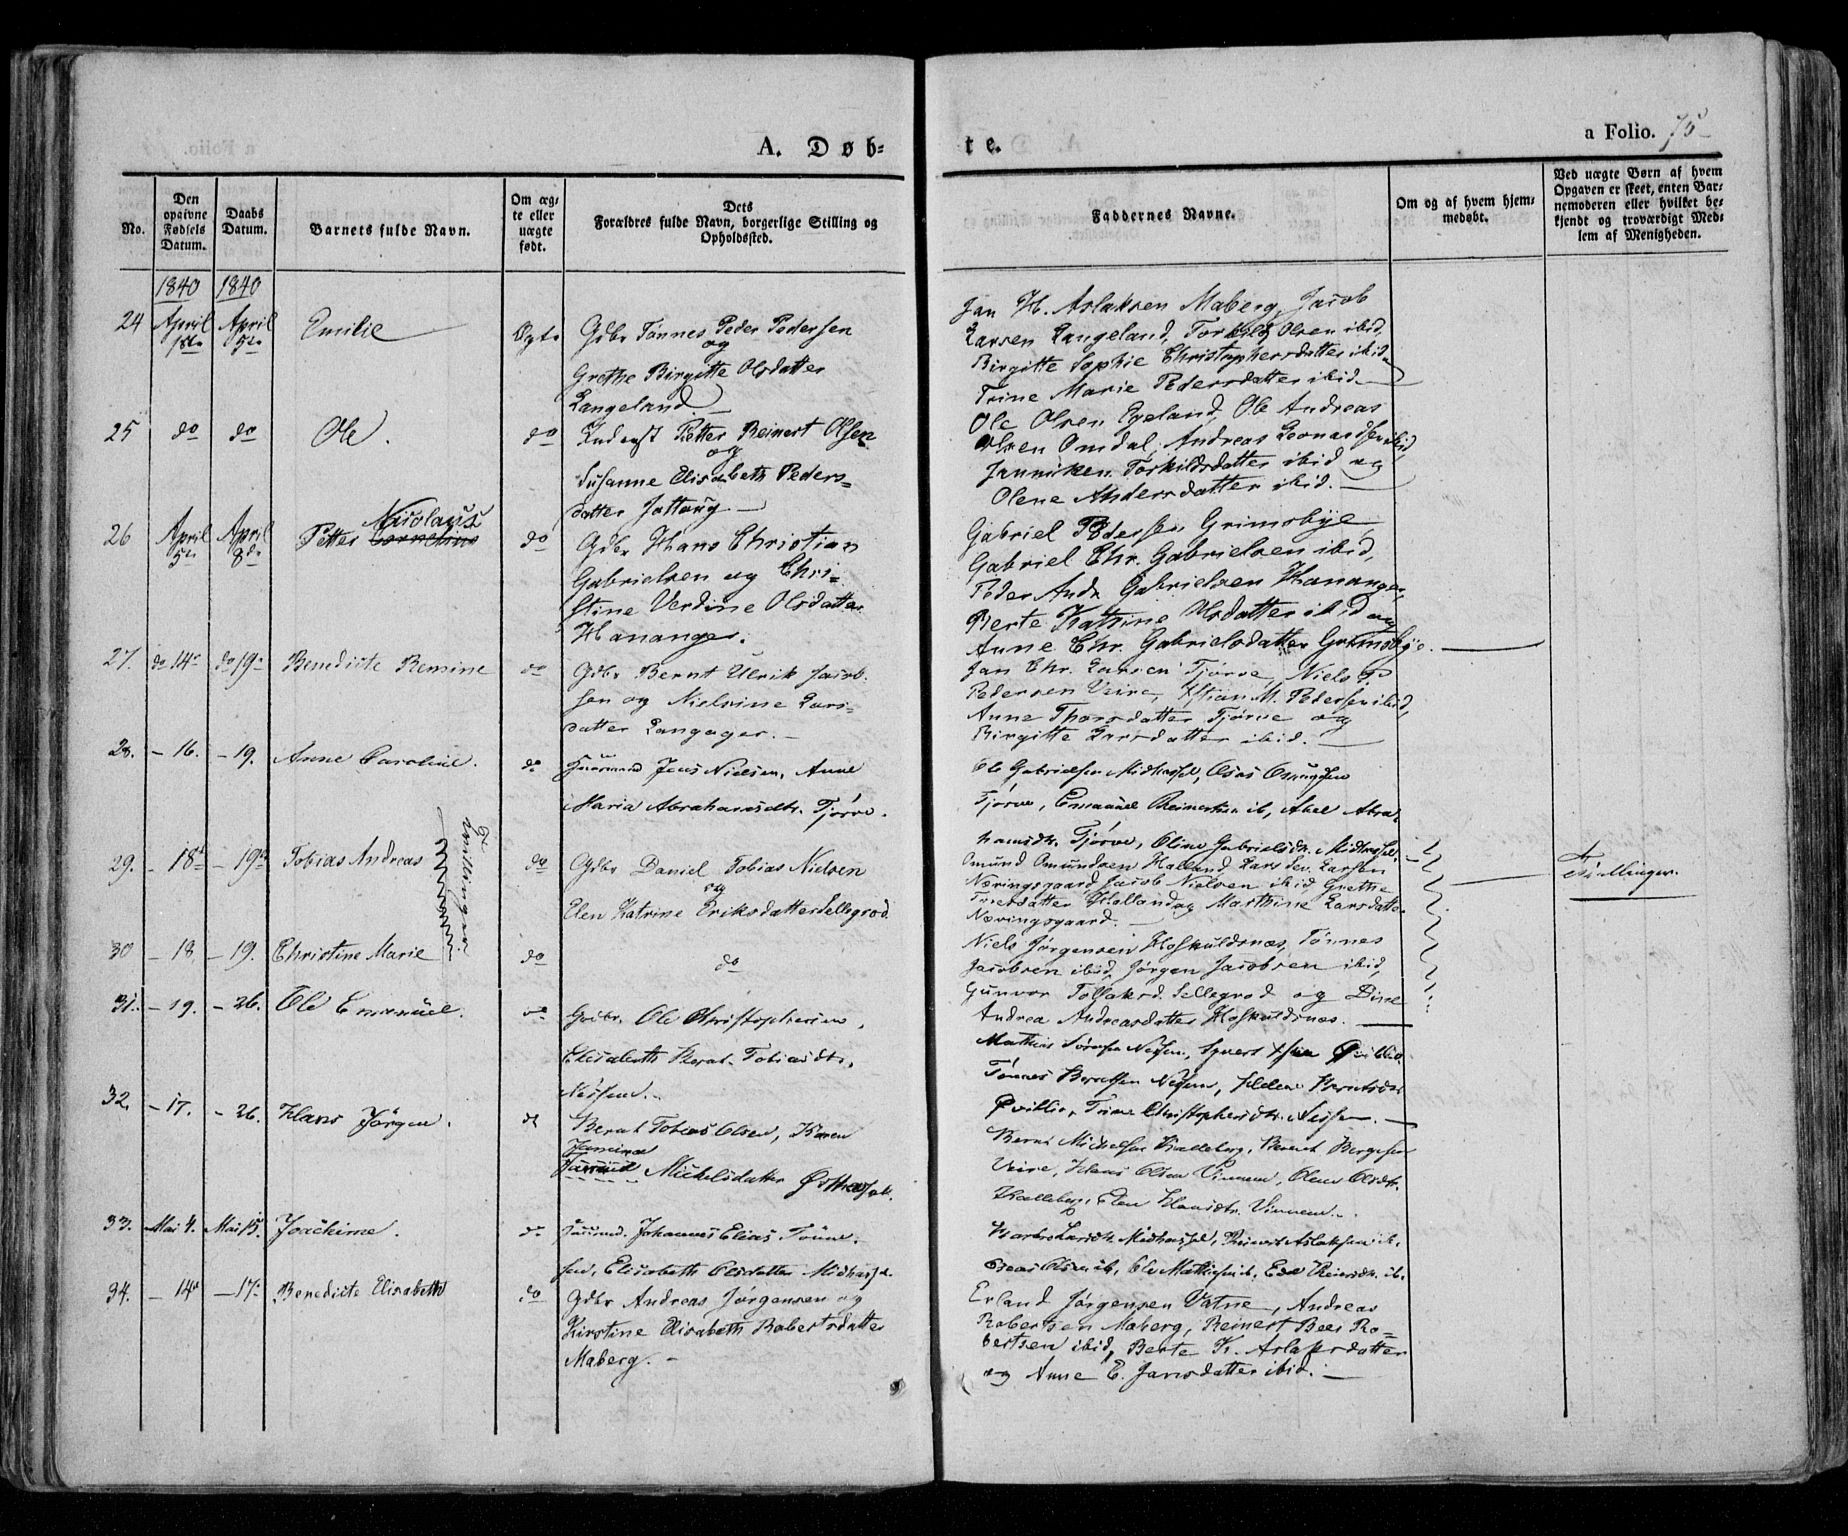 A. Døb- te. a Folio. 75
No.
Den opgivne Fødsels Datum.
Daabs Datum.
Barnets fulde Navn.
Om ægte eller uægte født.
Dets Forældres fulde Navn, borgerlige Stilling og Opholdssted.
Faddernes Navne.
Om og af hvem hjemmedøbt.
Ved uægte Børn af hvem Opgaven er skeet, enten Barnemoderen eller hvilket bekjendt og troværdigt Medlem af Menigheden.
1840 1840
24 April April Emilie Ægte Gdbr Tønnes Peder Pedersen
og
Grethe Birgitte Olsdatter
Langeland
Jan H. Aslaksen Maberg, Jacob
Larsen Langeland, Torkild Olsen ibid,
Birgitte Sophie Christophersdatter ibid
Trine Marie Pedersdatter ibid.
25 do do Ole. do Petter Reinert Olsen
og
Susanne Elisabeth Peders-
datter Jottoug
Ole Olsen Egeland, Ole Andreas
Olsen Omdal, Andreas Leonardsen ibid,
Janniken Torkildsdatter ibid og
Olene Andersdatter ibid.
26 April 5te April 8de Petter Cornelius Nicolaus do Gdbr Hans Christian
Gabrielsen og Chri-
stine Verdine Olsdatter
Hananger.
Gabriel Pedersen Grimsbye
Gabriel Chr. Gabrielsen ibid,
Peder Andr Gabrielsen Hananger,
Berte Katrine Olsdatter ibid og
Anne Chr. Gabrielsdatter Grimsbye.
27. do 14 do 19 Benedicte Remine do Gdbr Bernt Ulrik Jacob-
sen og Nielsine Lars-
datter Langager.
Jan Chr. Larsen Tjørve, Niels P.
Pedersen Veire, Stian M. Pedersen ibid,
Anne Thorsdatter Tjørve og
Birgitte Larsdatter ibid.
28. - 16. - 19. Anne Caroline. do Huusmand Jens Nielsen, Anne
Maria Abrahamsdtr. Tjørve.
Ole Gabrielsen Midhassel, Osmundsen
Tjørve, Emanuel Reinertsen ib, Abel Abra-
hamsdtr. Tjørve, Oline Gabrielsdtr. Midhassel.
29. - 18 - 19 Tobias Andreas tvillinger do Gdbr Daniel Tobias Nielsen
og
Elen Katrine Eriksdatter Sellegrod.
Omund Omundsen Halland, Lars Sev. Larsen
Næringsgaard, Jacob Nielsen ibid, Grethe
Halland og Marthine Larsdatter
Næringsgaard.
Tvillinger.
30 - 18. - 19. Christine Marie do do
Niels Jørgensen Hoskuldsnæs, Tønnes
Jacobsen ibid, Jørgen Jacobsen ibid,
Gunvor Tollaksd. Sellegrod og Dine
Andrea Andreasdatter Hoskuldsnæs.
31. - 19. - 26. Ole Emanuel. do Gdbr. Ole Christophersen,
Elisabeth Bernt. Tobiasdtr.
Nessem.
Mathias Sørensen Nessem,
Tønnes Berntsen Nessem, Helene Berntsdtr
Qvillio, Trine Christophersdtr. Nessem.
32. - 17. - 26. Hans Jörgen. do Bernt Tobias Olsen, Karen
Jamine
Michelsdatter Østhassel.
Bernt Michelsen Kalleberg, Bernt Børgesen
Veire, Hans Olsen Vinnem, Olene Olsdtr.
Kalleberg, Elen Hansdtr. Vinnem.
33. Mai 4. Mai 15. Joachime. do Huusmd. Johannes Elias Tönne-
sen, Elisabeth Olsdatter Midhassel.
Midhassel, Reinert Aslaksen ib.
Olsen ib, Ole Mathiesen ib.
34. - 14 - 17 Benedicte Elisabeth do Gdbr Andreas Jørgensen og
Kirstine Elisabeth Robertsdatter
Maberg.
Erland Jørgensen Vatne, Andreas
Robertsen Maberg, Reinert Beer Ro-
bertsen ibid, Berte K. Aslaksdatter
og Anne E. Jansdatter ibid.